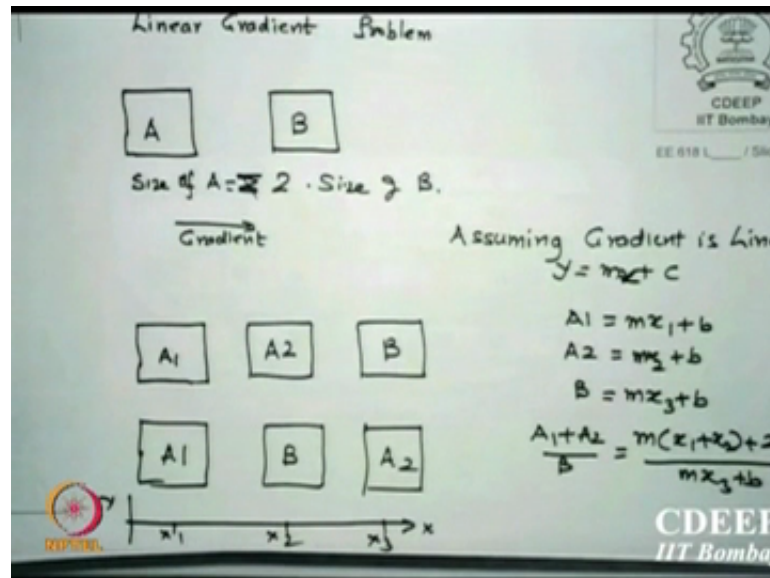 Linear Gradient Problem
CDEEP
IIT Bombay
EE 618 L____ / Slid
A
B
Size of A = 2 . Size of B.
Gradient
Assuming Gradient is Lin
y = mx + c
A1
A2
B
A1 = mx1 + b
A2 = m2 + b
B = mx3 + b
A1
B
A2
A1 + A2 / B = m(x1 + x2) + 2 / mx3 + b
x1 x2 x3 x
NPTEL
CDEEP
IIT Bombay